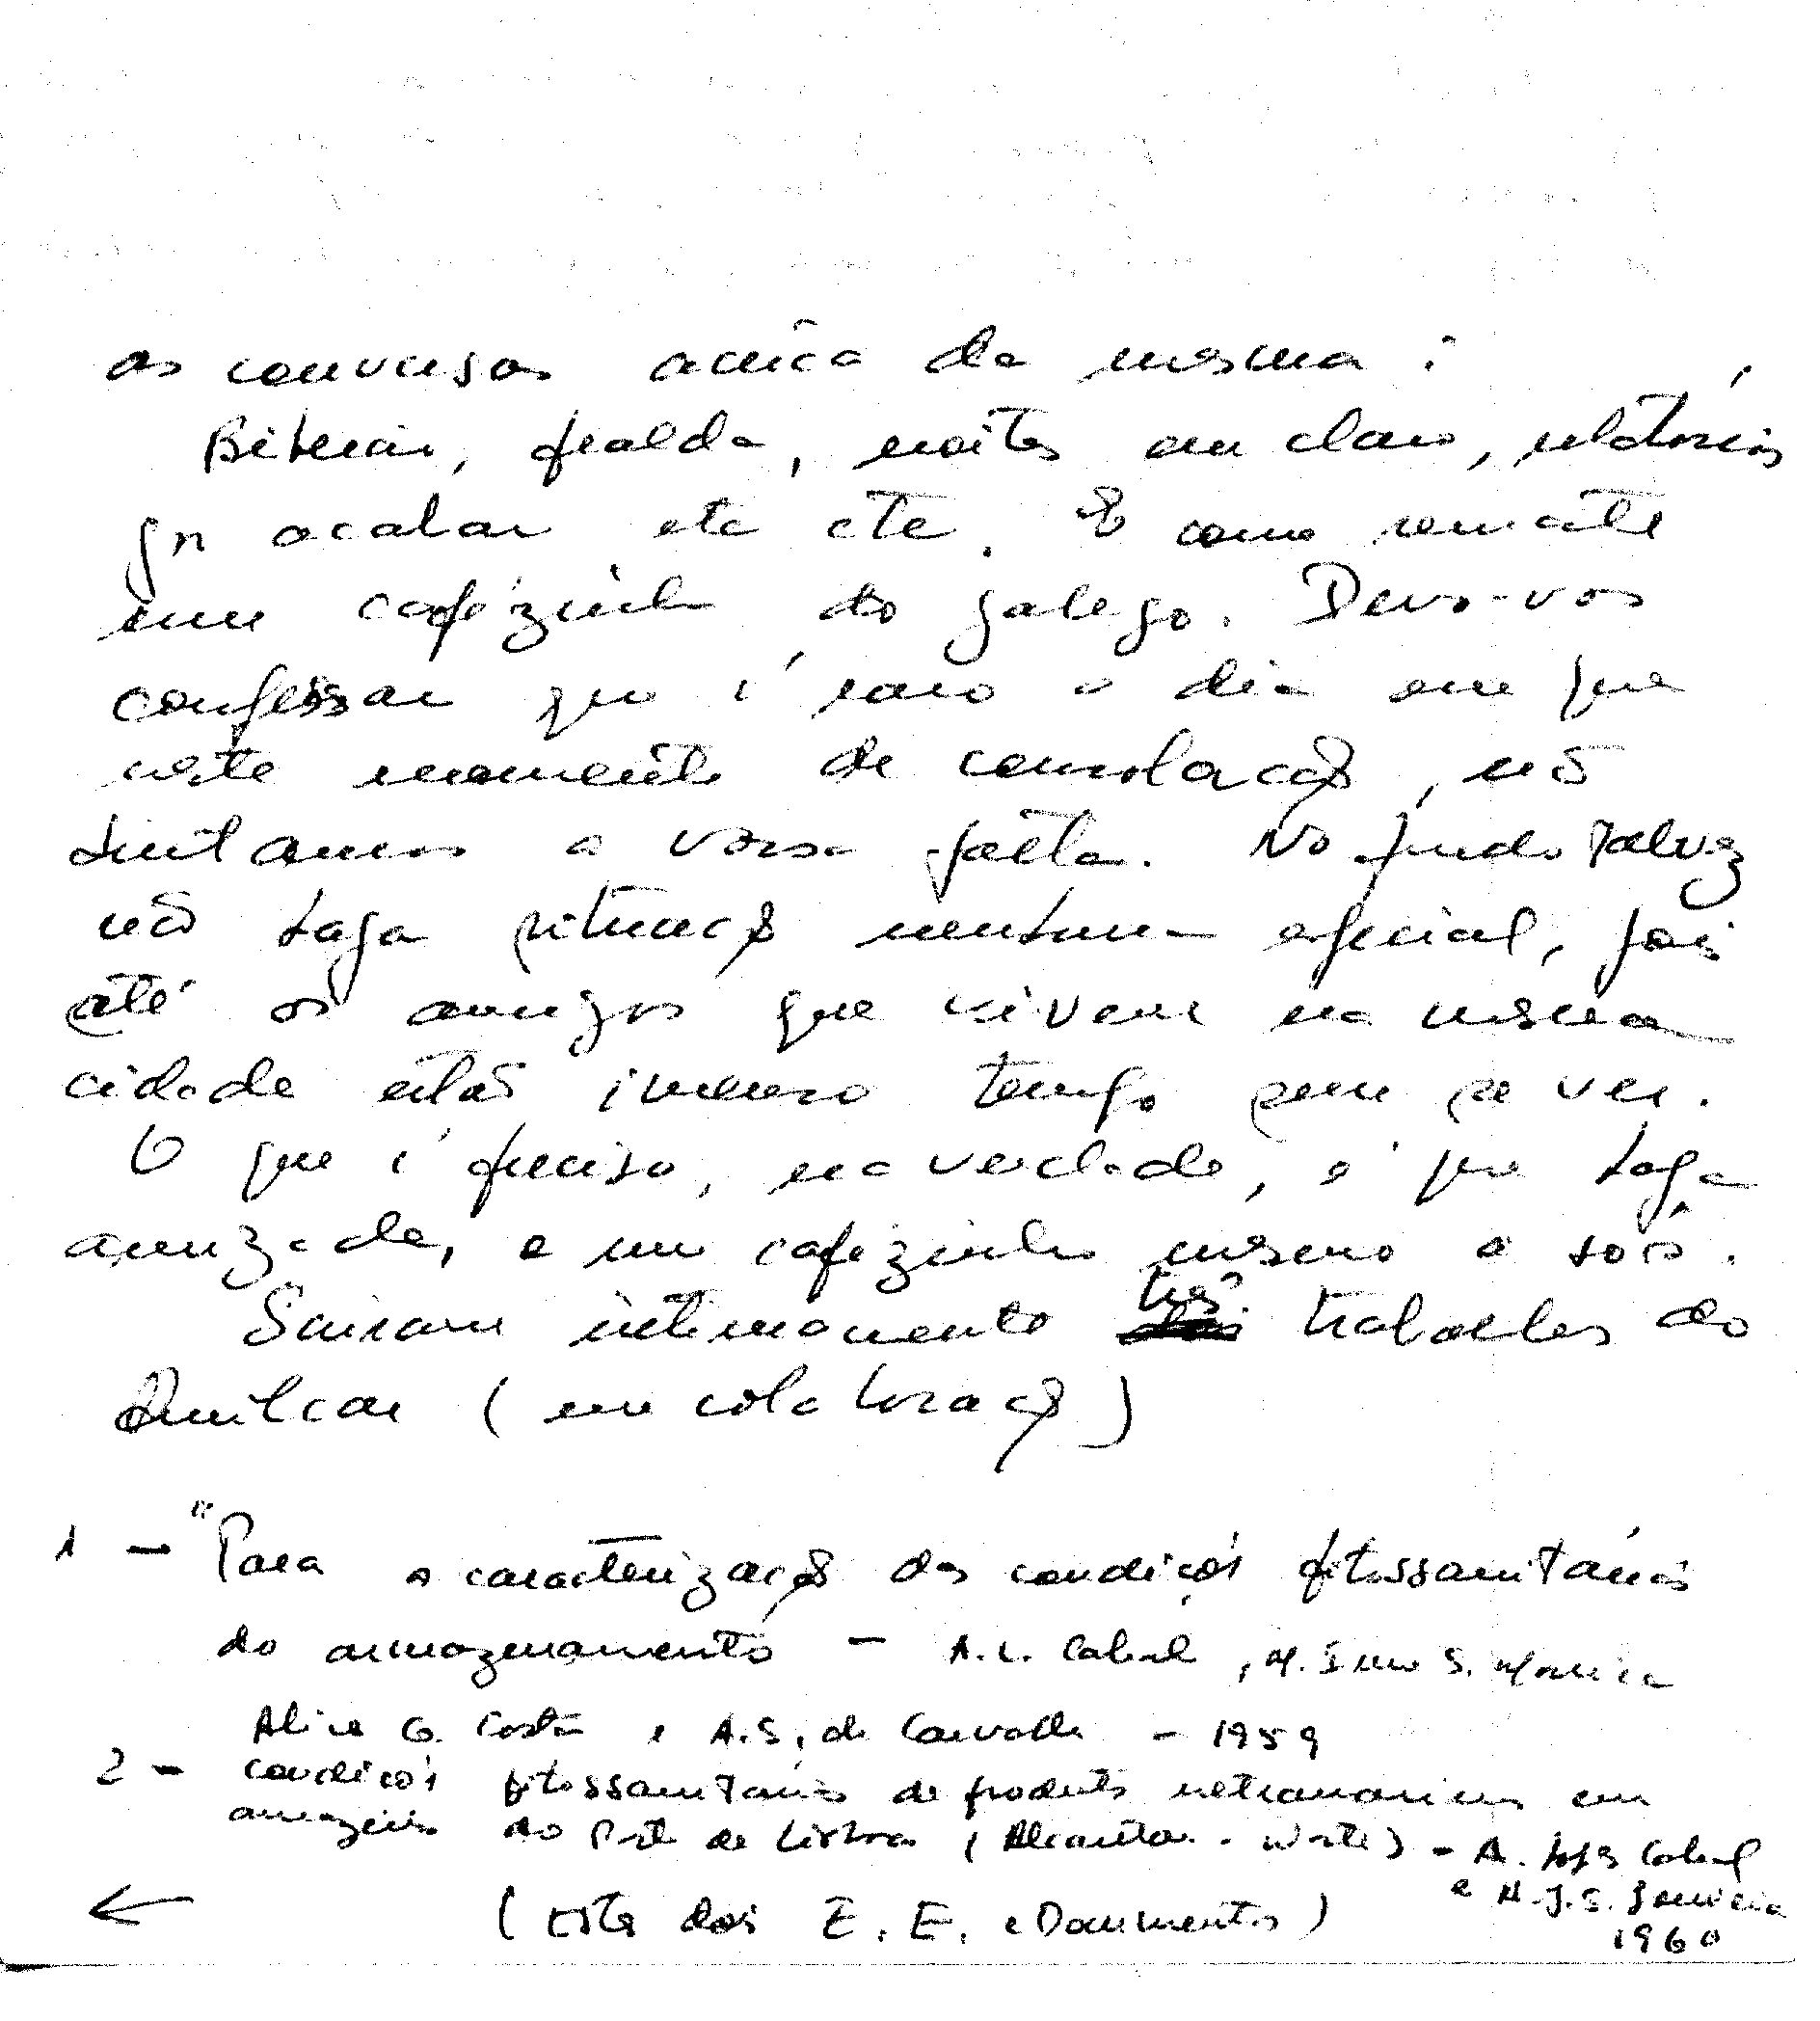 as conversas acêrca da mesma:
Biberon, fralda, noites em claro, relatórios
por acabar etc etc. E como remate
um cafézinho do galego. Devo-vos
confessar que é raro o dia em que
neste momento de consolação, não
sintamos a vossa falta. No fundo talvez
não haja situação nenhuma especial, pois
até os amigos que vivem na mesma
cidade estão imenso tempo sem se ver.
O que é preciso, na verdade, é que haja
amizade, e um cafezinho mesmo a sós.
Sairam ultimamente três trabalhos do
Amilcar (em colaboração)
1 – "Para a caracterização das condições fitossanitárias
do armazenamento – A. L. Cabral, M.
Alice G. Costa e A. S. de Carvalho – 1959
2 – Condições fitossanitárias de produtos ultramarinos em
armazéns do Porto de Lisboa (Alcantara-Norte) – A. Lopes Cabral
e
← (Estes dois E. E. e Documentos)
1960